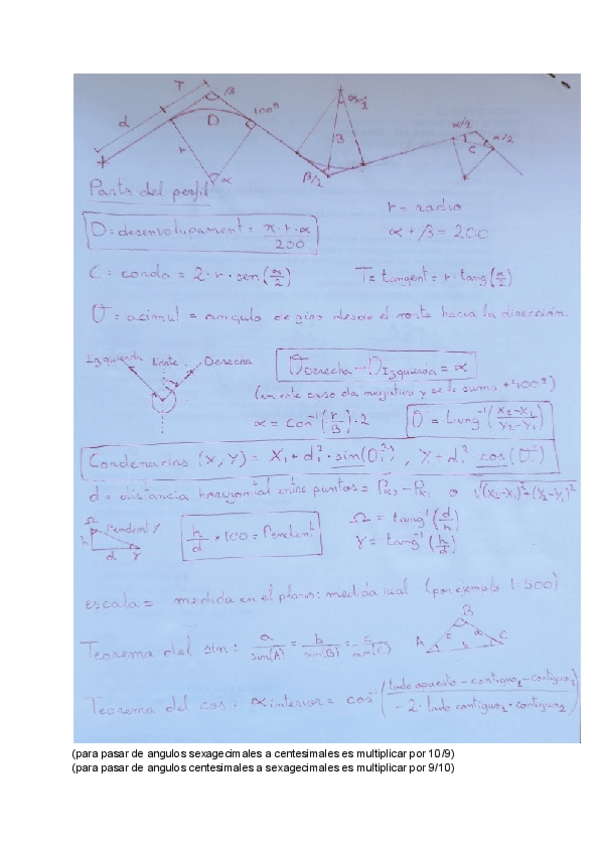 T
β
d
D
100ᵍ
r
α
α/2
B
β/2
α/2
α/2
C
Parts del perfil
r = radio
D = desenvolupament = π·r·α / 200
α + β = 200
C = corda = 2·r·sen(α/2)
T = tangent = r·tang(α/2)
= acimut = angulo de giro desde el norte hacia la dirección.
Izquierda Norte Derecha
Derecha - Izquierda = α
(en este caso da negativo y se le suma +400ᵍ)
α = cos⁻¹(r/B)·2
Coordenadas (X,Y) =
d = distancia horizontal entre puntos =
Ω
Pendent %
h
d
γ
h/d × 100 = Pendent
Ω = tang⁻¹(d/h)
γ = tang⁻¹(h/d)
escala = medida en el plano : medida real (por ejemplo 1:500)
Teorema del sin: a/sin(A) = b/sin(B) = c/sin(C)
B
A
C
c
a
b
Teorema del cos: α interior = cos⁻¹(lado opuesto - contiguo₁ - contiguo₂ / -2·lado contiguo₁·contiguo₂)
(para pasar de angulos sexagecimales a centesimales es multiplicar por 10/9)
(para pasar de angulos centesimales a sexagecimales es multiplicar por 9/10)